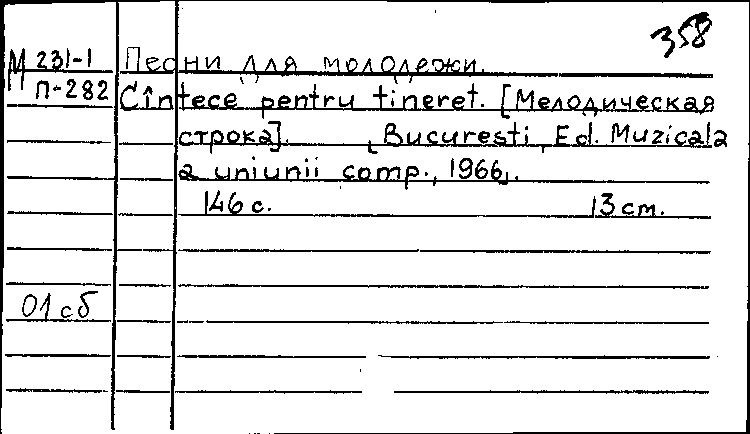 358
М 231-1 Песни для молодежи.
П-282 Cîntece pentru tineret. [Мелодическая
строка]. [Bucuresti, Ed. Muzicala
a uniunii comp., 1966].
146 с. 13 cm.
01 сб